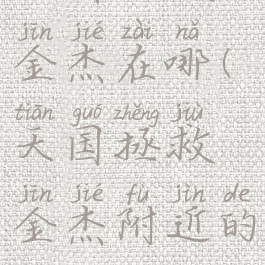 jīn jié zài nǎ
金杰在哪(
tiān guó zhěng jiù
天国拯救
jīn jié fù jìn de
金杰附近的